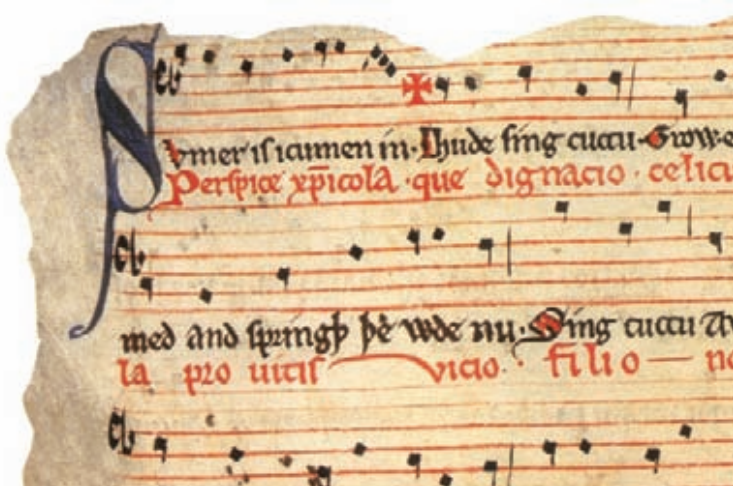 Svmer is icumen in·Lhude sing cuccu·Groweþ
Perspice xp̄icola·que dignacio·celicus
med and springþ þe wde nu·Sing cuccu
la pro uitis vicio·filio